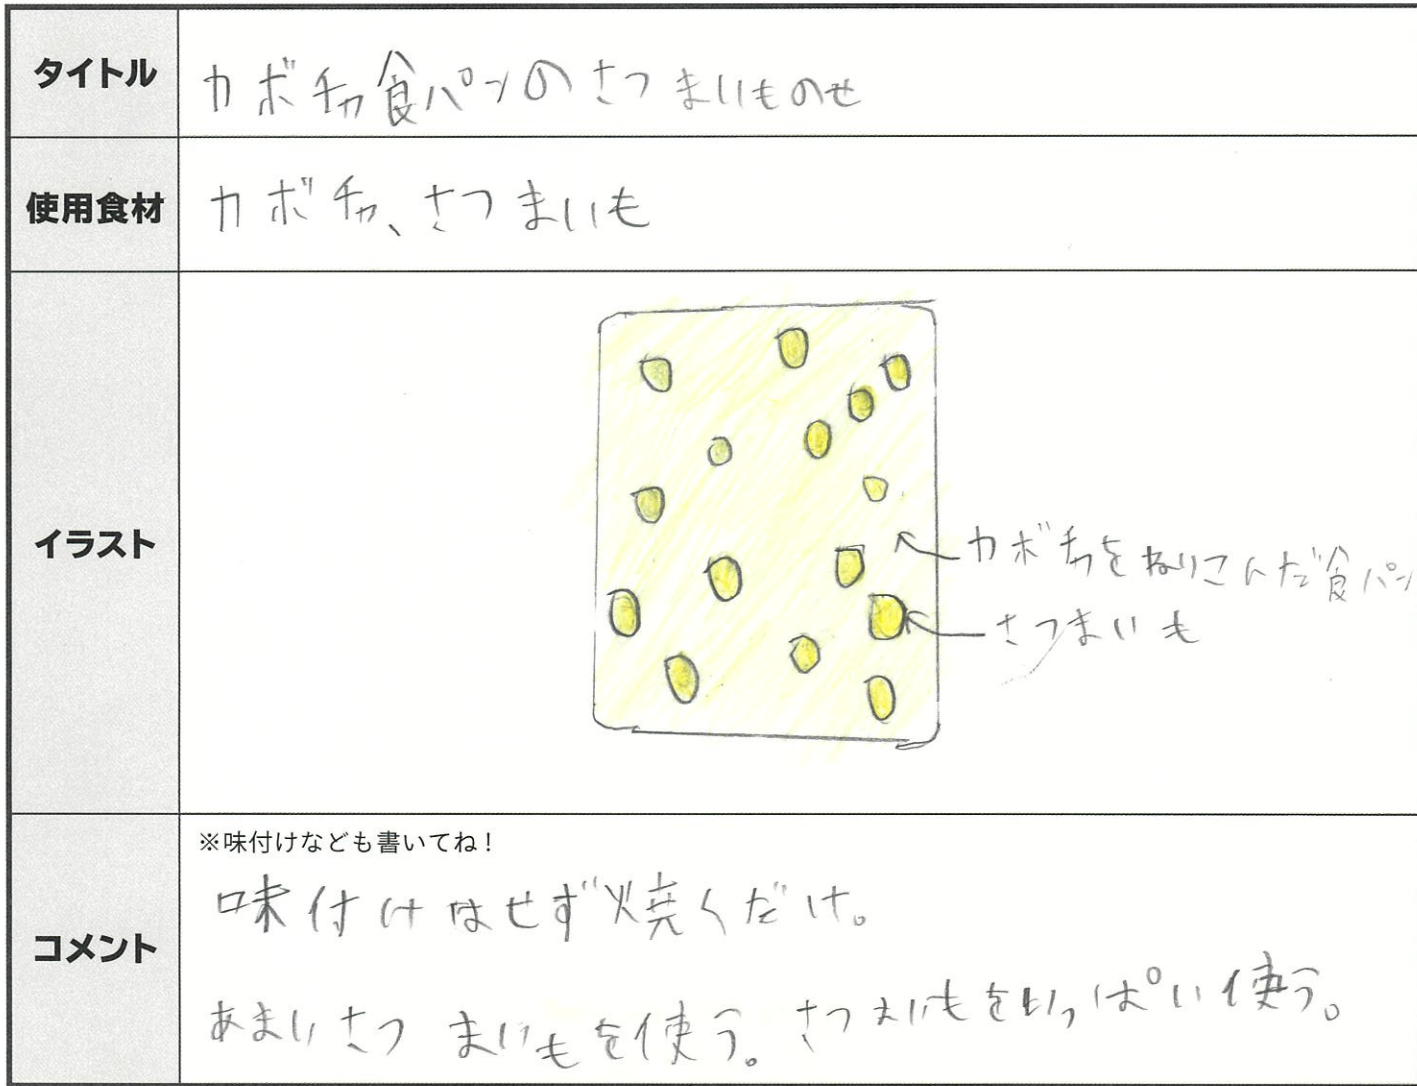 タイトル
カボチャ食パンのさつまいものせ
使用食材
カボチャ、さつまいも
イラスト
カボチャをねりこんだ食パン
さつまいも
コメント
※味付けなども書いてね！
味付けはせず焼くだけ。
あまいさつまいもを使う。さつまいもをいっぱい使う。